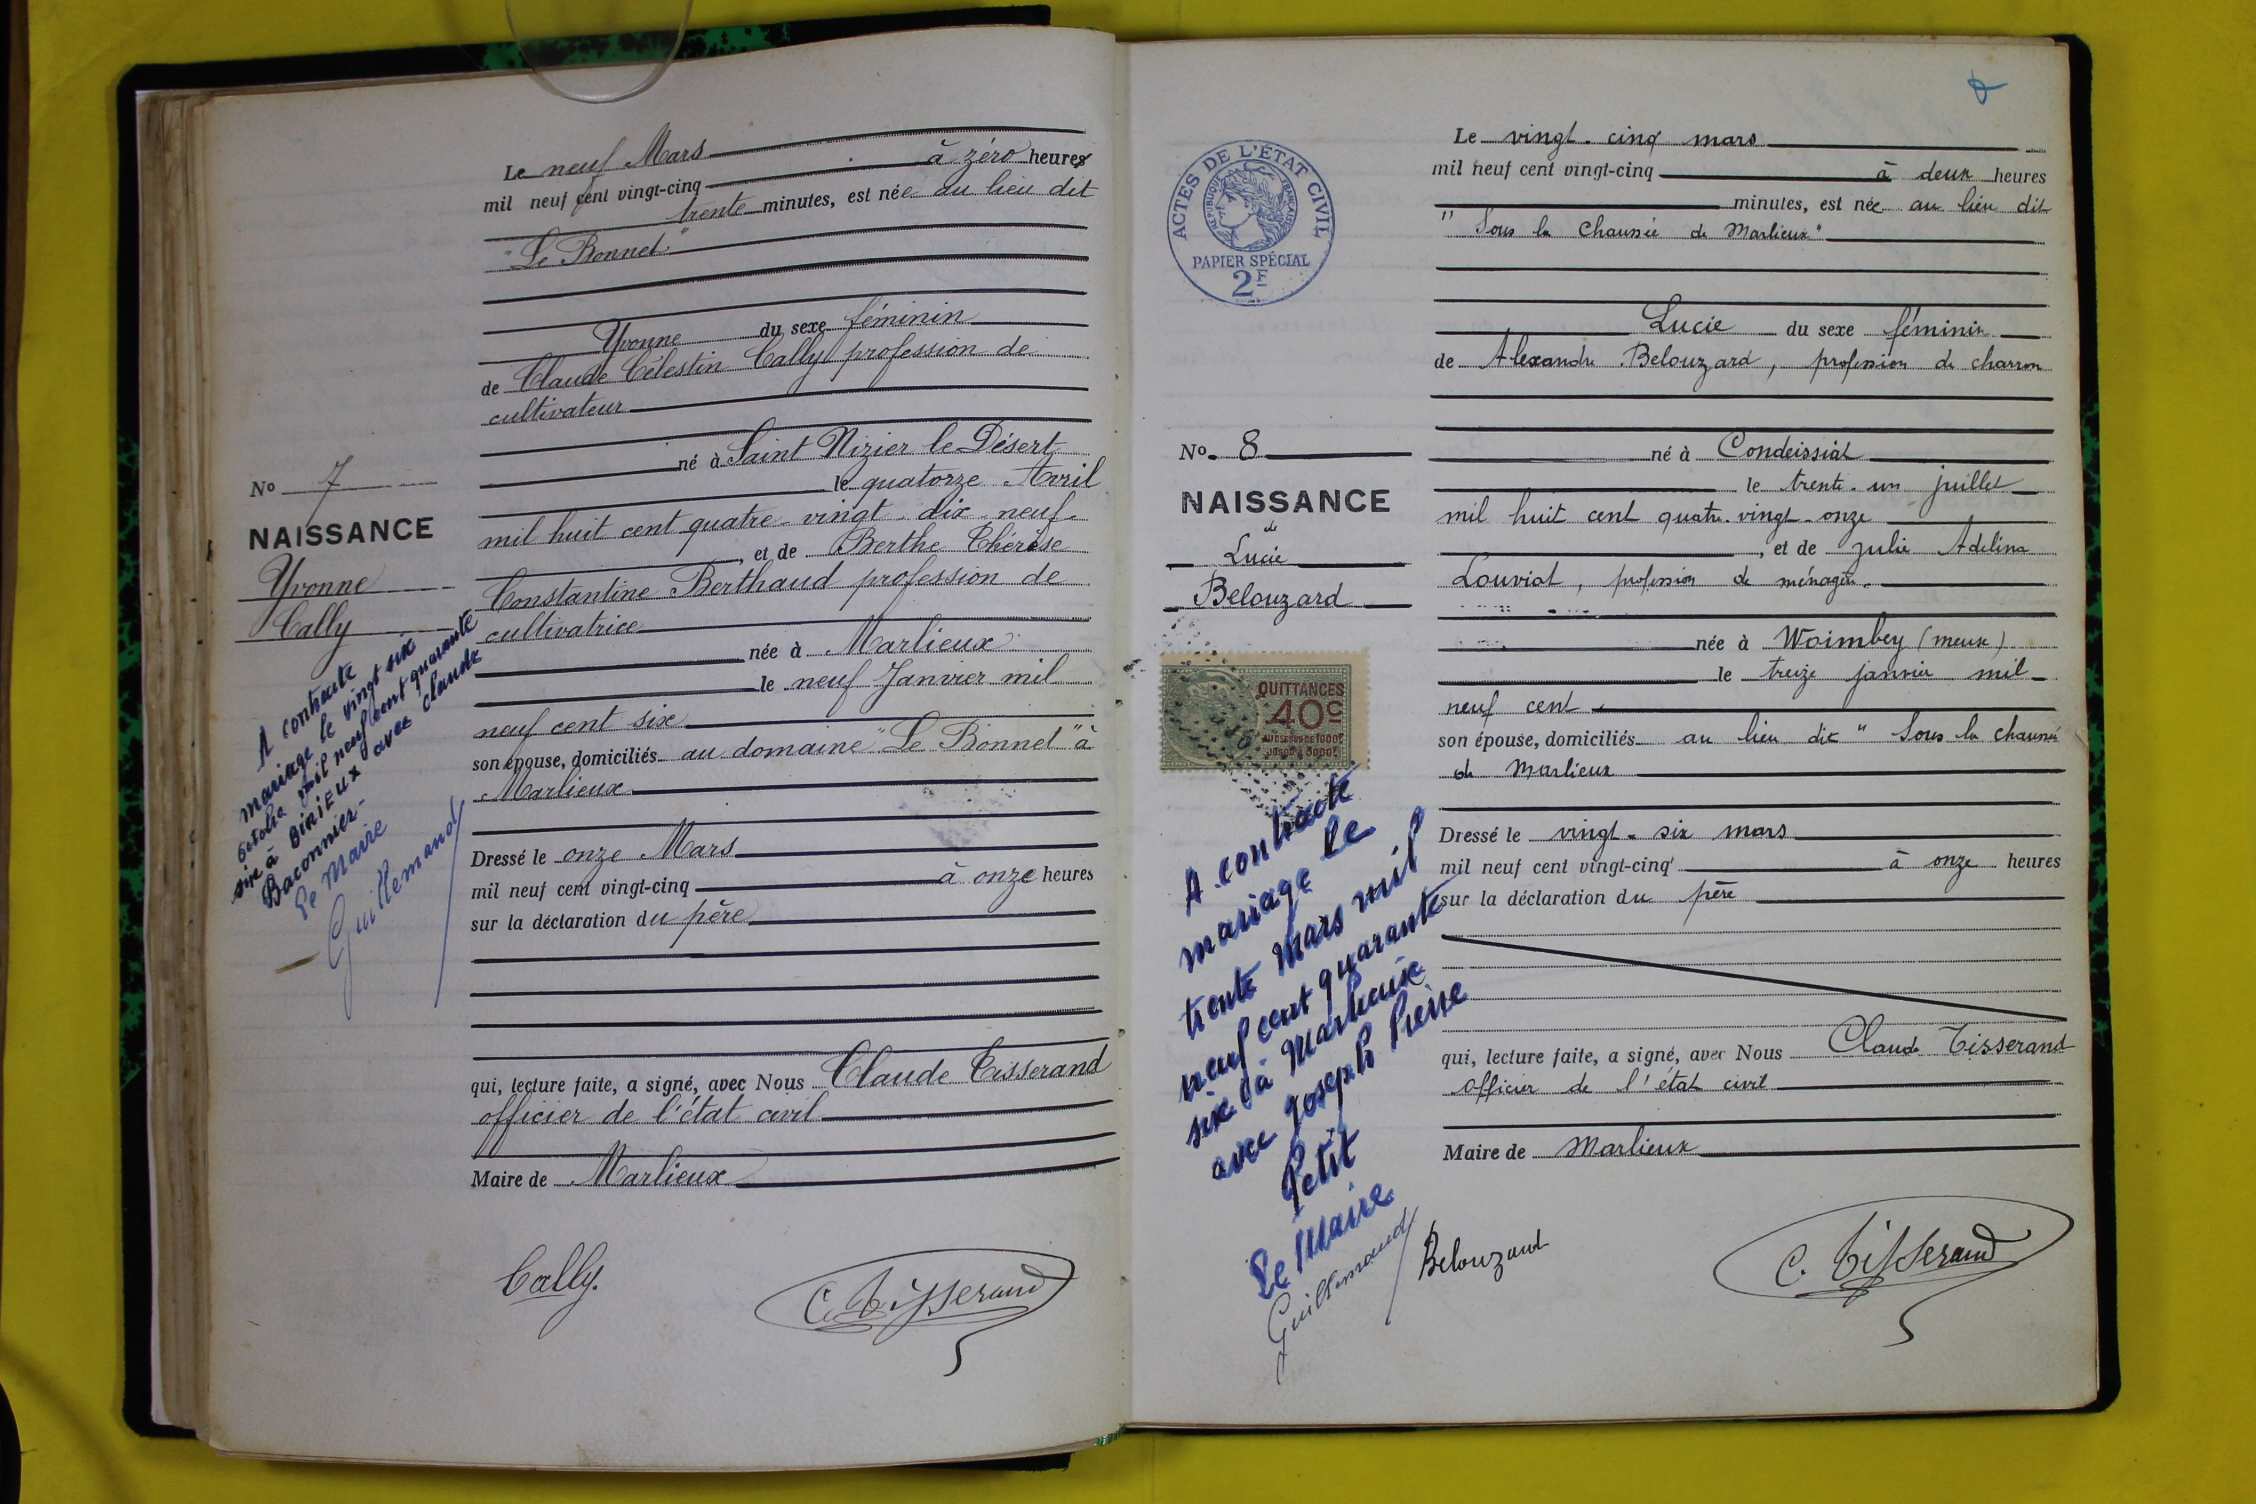 Le neuf Mars
mil neuf cent vingt-cinq à zéro heures
trente minutes, est née au lieu dit
"Le Bonnet"
Yvonne du sexe féminin
de Claude Célestin Cally profession de
cultivateur
né à Saint Nizier le Désert
le quatorze Avril
mil huit cent quatre-vingt-dix-neuf
et de Berthe Thérèse
Constantine Berthaud profession de
cultivatrice
née à Marlieux
le neuf Janvier mil
neuf cent six
son épouse, domiciliés au domaine "Le Bonnet" à
Marlieux
Dressé le onze Mars
mil neuf cent vingt-cinq à onze heures
sur la déclaration du père
qui, lecture faite, a signé, avec Nous Claude Tisserand
officier de l'état civil
Maire de Marlieux
Cally.
C. Tisserand
No 7
NAISSANCE
Yvonne
Cally
A contracté
mariage le vingt six
octobre mil neuf cent quarante
six à Birieux avec Claude
Baconnier-
Le Maire
Guillemaud
ACTES DE L'ÉTAT CIVIL
RÉPUBLIQUE FRANÇAISE
PAPIER SPÉCIAL
2F
No. 8
NAISSANCE
de
Lucie
Belouzard
QUITTANCES
40c
A contracté
mariage le
trente Mars mil
neuf cent quarante
six à Marlieux
avec Joseph Pierre
Petit
Le Maire
Guillemaud
Le vingt-cinq mars
mil neuf cent vingt-cinq à deux heures
minutes, est née au lieu dit
"Sous la Chaussée de Marlieux"
Lucie du sexe féminin
de Alexandre Belouzard, profession de charron
né à Condeissiat
le trente-un juillet
mil huit cent quatre-vingt-onze
, et de Julie Adelina
Louviot, profession de ménagère.
née à Woimbey (meuse)
le treize janvier mil
neuf cent
son épouse, domiciliés au lieu dit "Sous la chaussée
de Marlieux
Dressé le vingt-six mars
mil neuf cent vingt-cinq à onze heures
sur la déclaration du père
qui, lecture faite, a signé, avec Nous Claude Tisserand
officier de l'état civil
Maire de Marlieux
Belouzard
C. Tisserand